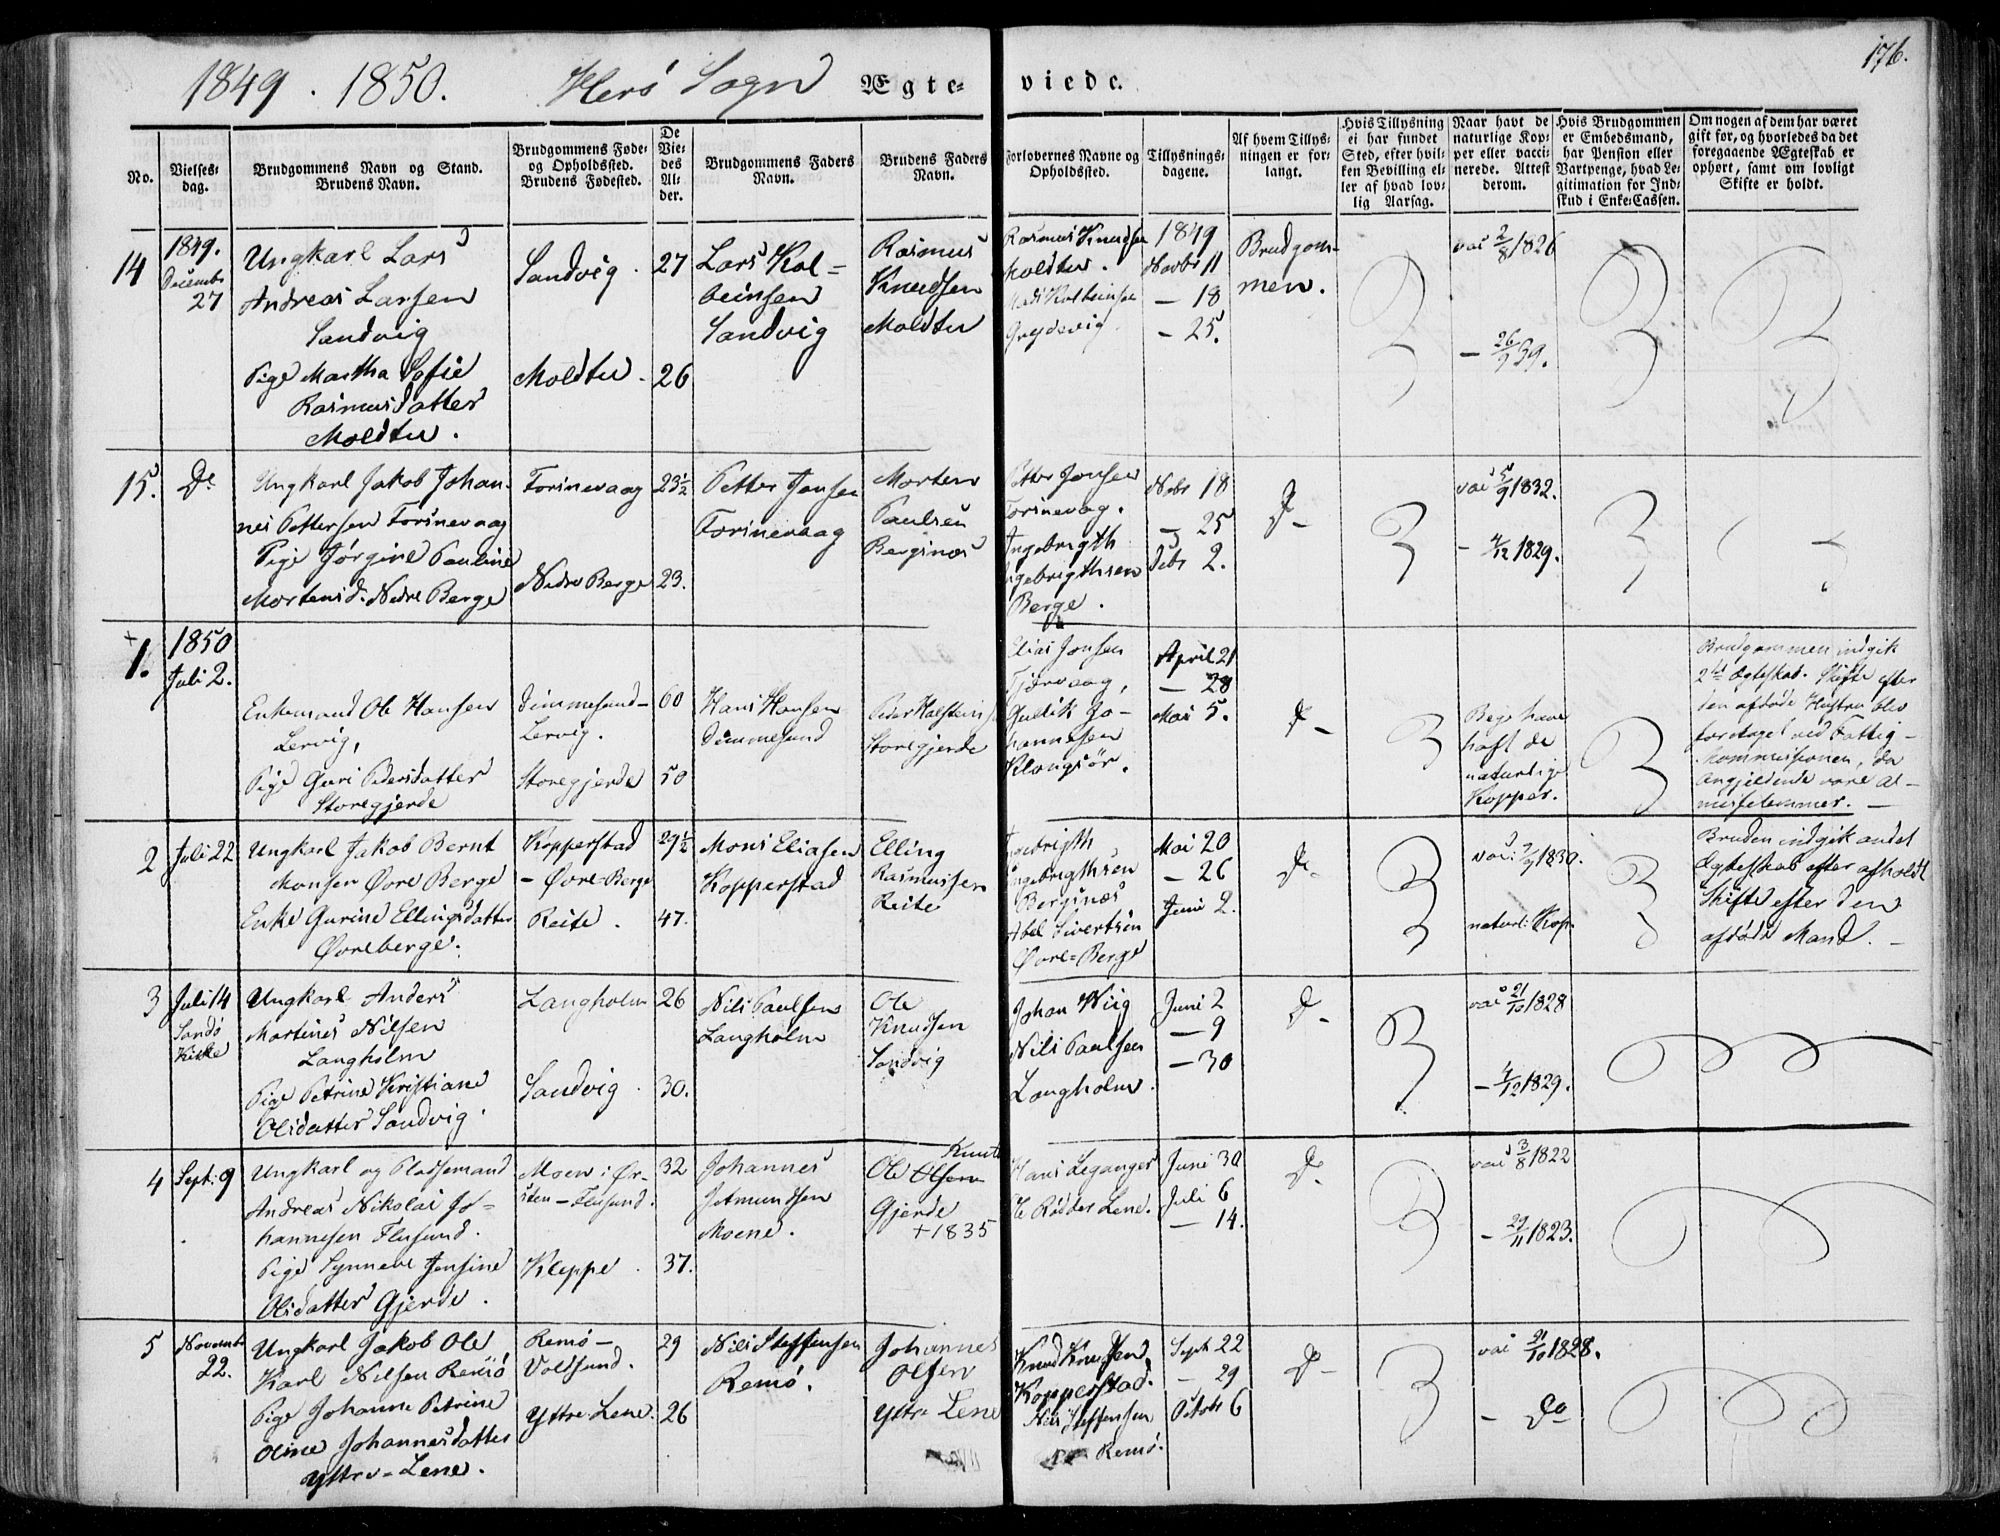 176.
1849. 1850. Herö Sogn Ægteviede.
No.
Vielsesdag.
Brudgommens Navn og Stand.
Brudens Navn.
Brudgommens Føde-
og Opholdssted.
Brudens Fødested.
De
Vie-
des
Al-
der.
Brudgommens Faders
Navn.
Brudens Faders
Navn.
Forlovernes Navne og
Opholdssted.
Tillysnings-
dagene.
Af hvem Tillys-
ningen er for-
langt.
Hvis Tillysning
ei har fundet
Sted, efter hvil-
ken Bevilling el-
ler af hvad lov-
lig Aarsag.
Naar havt de
naturlige Kop-
per eller vacci-
nerede. Attest
derom.
Hvis Brudgommen
er Embedsmand,
har Pension eller
Vartpenge, hvad Le-
gitimation for Ind-
skud i Enke-Cassen.
Om nogen af dem har været
gift før, og hvorledes da det
foregaaende Ægteskab er
ophørt, samt om lovligt
Skifte er holdt.
14
1849.
Decembr
27
Ungkarl Lars
Andreas Larsen
Sandvig
Pige Martha Sofie
Rasmusdatter
Moldtu.
Sandvig. 27
Moldtu. 26
Lars Kol-
beinsen
Sandvig
Rasmus
Knudsen
Moldtu
Rasmus Knudsen
Moldtu.
Mads Kolbeinsen
1849
Novbr 11
- 18
- 25.
Brudgom-
men.
vac 2/8 1826
- 26/9 39.
15.
Do
Ungkarl Jakob Johan-
nes Pettersen Torinevaag
Pige Jørgine Pauline
Mortensd. Nedre Berge
Torinevaag 23½
Nedre Berge 23.
Petter Jensen
Torinevaag
Morten
Paulsen
Bergsnæs
Petter Jensen
Torinevaag.
Ingebrigth
Ingebrigthsen
Berge.
Nobr 18
- 25
Debr 2.
D-
vac 5/9 1832.
- 4/12 1829.
+1.
1850
Juli 2.
Enkemand Ole Hansen
Lervig,
Pige Guri Pedersdatter
Storegjerde
Dimmesund-
Lervig. 60
Storegjerde 50
Hans Hansen
Dimmesund
Peder Halsteins.
Storegjerde
Elias Jonsen
Tjørvaag,
Gullik Jo-
hannesen
Klongsör.
April 21
- 28
Mai 5.
D-
Bege have
haft de
naturlige
Kopper.
Brudgommen indgik
2det Ægteskab. Skifte efter
den afdøde Hustru blev
foretaget ved Fattig-
kommissionen, da
angjeldende vare al-
misselemmer. -
2
Juli 22
Ungkarl Jakob Bernt
Monsen Øvre Berge
Enke Gurine Ellingsdatter
Øvreberge.
Kopperstad 29½
- Øvre-Berge
Reite. 47.
Mons Eliasen
Kopperstad
Elling
Rasmussen
Reite
Ingebrigth
Ingebrigthsen
Bergsnæs
Abel Sivertsen
Øvre-Berge
Mai 20
- 26
Juni 2.
D-
vac 7/9 1830.
naturl. Kop.
Bruden indgik andet
Ægteskab efter afholdt
Skifte efter den
afdøde Mand. -
3
Juli 14
Sandö
Kirke
Ungkarl Anders
Martines Nilsen
Langholm
Pige Petrine Kristiane
Olsdatter Sandvig.
Langholm 26
Sandvig. 30.
Nils Paulsen
Langholm
Ole
Knudsen
Sandvig
Johan Wiig
Nils Paulsen
Langholm.
Juni 2
- 9
- 30
D-
vac 21/10 1828
- 4/12 1829.
4
Sept: 9
Ungkarl og Pladsemand
Andreas Nikolai Jo-
hannesen Flusund.
Pige Synneve Jensine
Olsdatter Gjerde.
Moen i Ør-
sten - Flusund. 32
Kleppe. 37.
Johannes
Jetmundsen
Moene.
Knut
Ole Olsen
Gjerde
+ 1835
Hans Leganger
E Rödder Lene.
Juni 30
Juli 6
- 14.
D-
vac 3/8 1822
- 29/11 1823.
5
Novembr
22.
Ungkarl Jakob Ole
Karl Nilsen Remö
Pige Johanne Petrine
Oline Johannesdatter
Yttre-Lene.
Remö-
Voldsund. 29
Yttre-Lene. 26
Nils Steffensen
Remö.
Johannes
Olsen
Yttre Lene
Knud Knudsen
Kopperstad.
Nils Steffensen
Remö.
Sept 22
- 29
Octobr 6
D-
vac 21/10 1828.
- Do